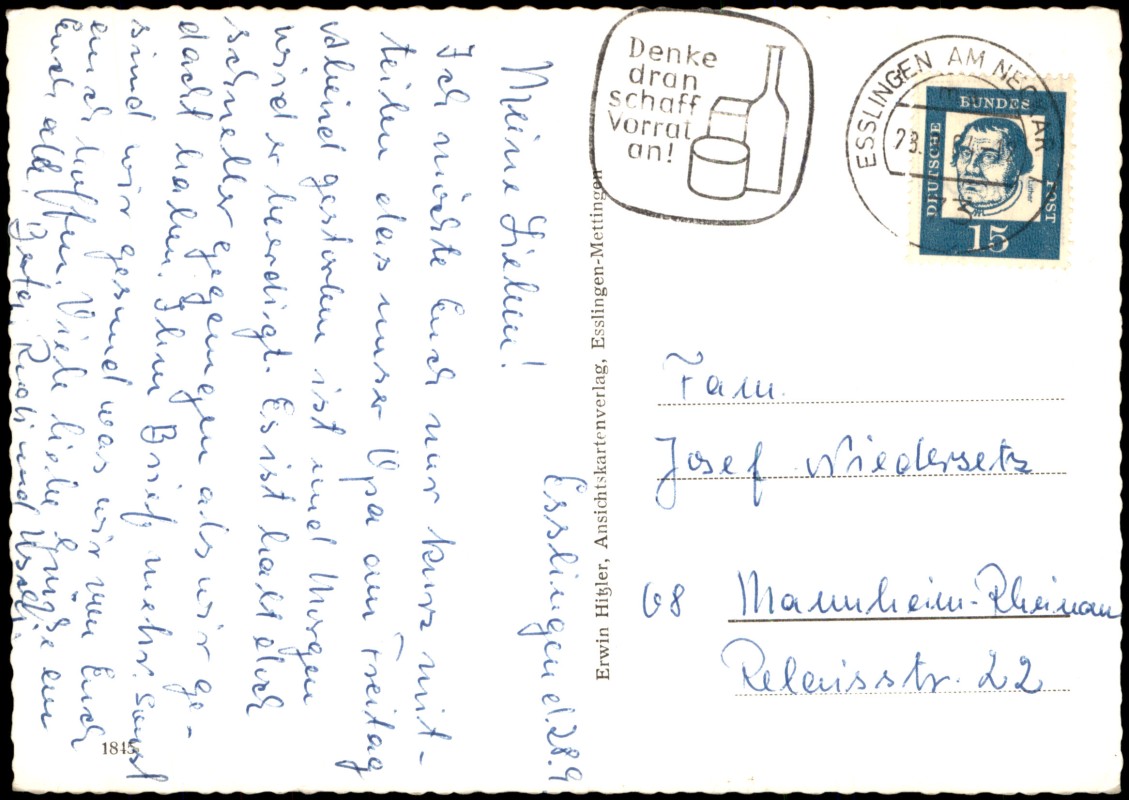 Esslingen d. 28.9
Meine Lieben!
Ich möchte Euch nur kurz mit-
teilen das unser Opa am Freitag
Abend gestorben ist und Morgen
wird er beerdigt. Es ist halt doch
schneller gegangen als wir ge-
dacht haben. Ihm Brief mehr. Sonst
sind wir gesund was wir von Euch
auch hoffen. Viele liebe Grüße an
Euch alle
Rudi und
1845
Erwin Hitzler, Ansichtskartenverlag, Esslingen-Mettingen
Denke
dran
schaff
Vorrat
an!
ESSLINGEN AM NECKAR
DEUTSCHE
BUNDES
POST
Luther
15
Fam.
Josef Niedersetz
68 Mannheim-Rheinau
Relaisstr. 22